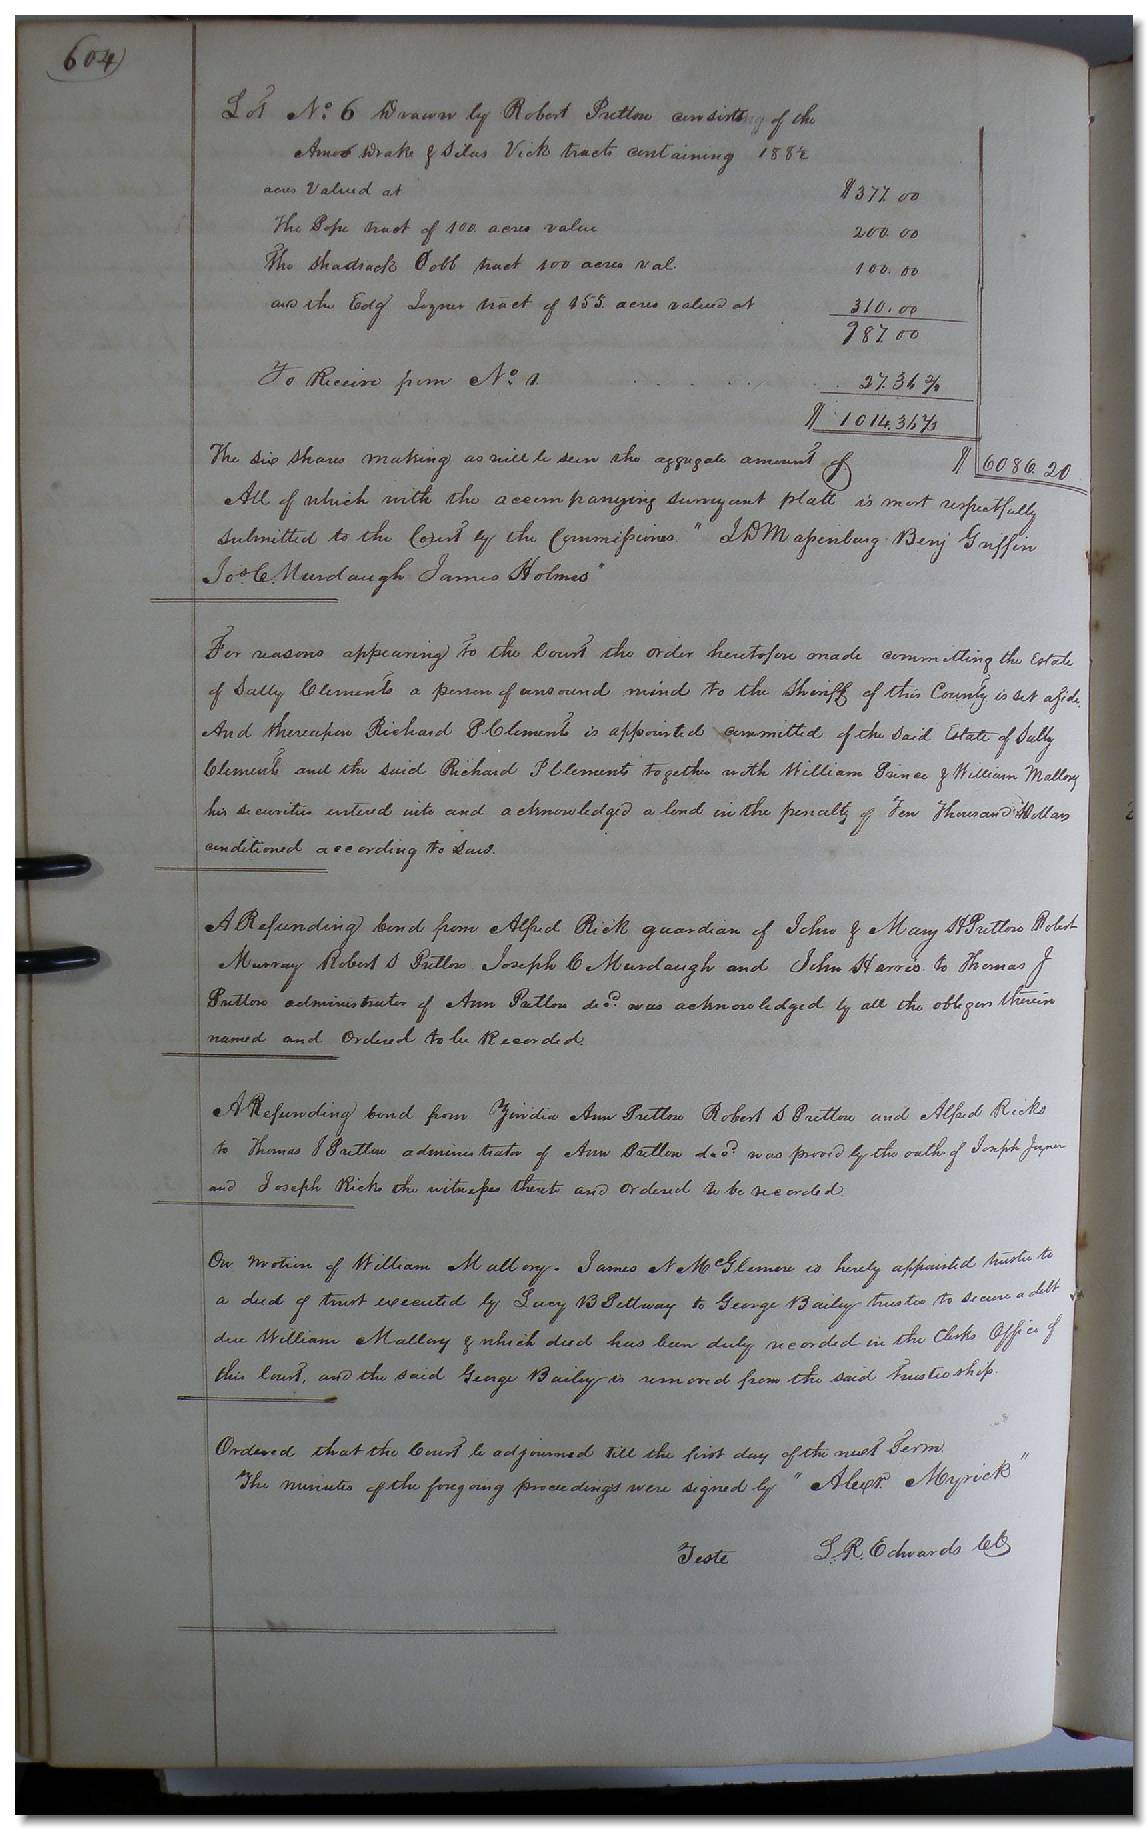 604
Lot No. 6 Drawn by Robert Pretlow consisting of the
Amos Drake & Silas Vick tracts containing 188½
acres Valued at $377.00
The Pope tract of 100 acres value 200.00
The Shadrack Cobb tract 100 acres val. 100.00
and the Edg Joyner tract of 155 acres valued at 310.00
987.00
To Receive from No. 1. 27.36 ⅔
$ 1014.36⅔
The six shares making as will be seen the aggregate amount of $ 6086.20
All of which with the accompanying surveyant platt is most respectfully
submitted to the Court by the Commissiones. " J D Massenburg Benj Griffin
Jos C. Murdaugh James Holmes"
For reasons appearing to the Court the order heretofore made committing the Estate
of Sally Clements a person of unsound mind to the Sheriff of this County is set aside.
And thereupon Richard P Clements is appointed committed of the said Estate of Sally
Clements and the said Richard P Clements together with William Prince & William Mallory
his securities entered into and acknowledged a bond in the penalty of Ten Thousand Dollars
conditioned according to Law.
A Refunding bond from Alfred Rick guardian of John & Mary H Pretlow Robert
Murray Robert S Pretlow Joseph C Murdaugh and John Harris to Thomas J
Pretlow administrator of Ann Pretlow decd. was acknowledged by all the obligors therein
named and Ordered to be Recorded.
A Refunding bond from Ann Pretlow Robert S Pretlow and Alfred Ricks
to Thomas J Pretlow administrator of Ann Pretlow decd. was proved by the oath of Joseph Joyner
and Joseph Ricks the witnesses thereto and ordered to be recorded.
On motion of William Mallory. James N McGlemere is hereby appointed trustee to
a deed of trust executed by Lucy B Pettway to George Bailey trustee to secure a debt
due William Mallory & which deed has been duly recorded in the Clerks Office of
this Court, and the said George Bailey is removed from the said trusteeship.
Ordered that the Court be adjourned till the first day of the next Term.
The minutes of the foregoing proceedings were signed by " Alexr. Myrick"
Teste L. R. Edwards CC